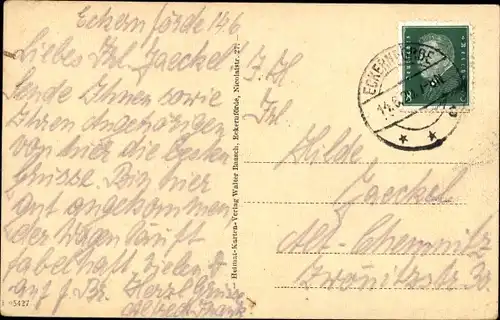 Eckernförde 14.6
Liebes Frl. Jaeckel
Sende Ihnen sowie
Ihren Angehörigen
von hier die besten
Grüsse. Bin hier
gut angekommen
der Wagen läuft
fabelhaft vielen
auf f. Br. Herzl. Grüsse
Heimat-Karten-Verlag Walter Baasch, Eckernförde, Nicolaistr. 27
5427
ECKERNFÖRDE
14.6.
Frl
Hilde
Jaeckel
Alt-Chemnitz
Zwönitzstr.